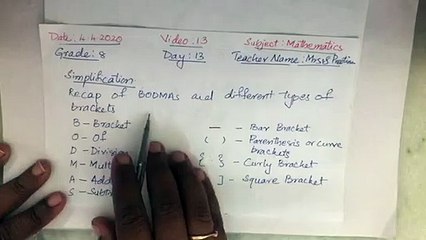 Date: 4.4.2020 Video: 13 Subject: Mathematics
Grade: 8 Day: 13 Teacher Name: Mrs
Simplification
Recap of BODMAS and different types of
brackets
B - Bracket — - Bar Bracket
O - Of ( ) - Parenthesis or curve
brackets
D - Divisi
M - Mult { } - Curly Bracket
A - Add ] - Square Bracket
S - Subt